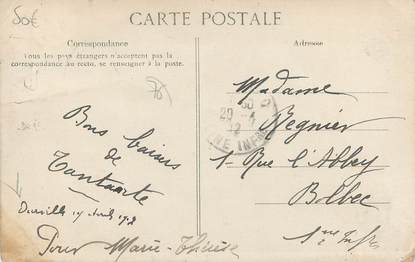 80€
CARTE POSTALE
Correspondance
Tous les pays étrangers n'acceptent pas la
correspondance au recto, se renseigner à la poste.
Adresse
Madame
Regnier
1 Rue l'Abbey
Bolbec
Bons baisers
de
Pour Marie-Thérèse